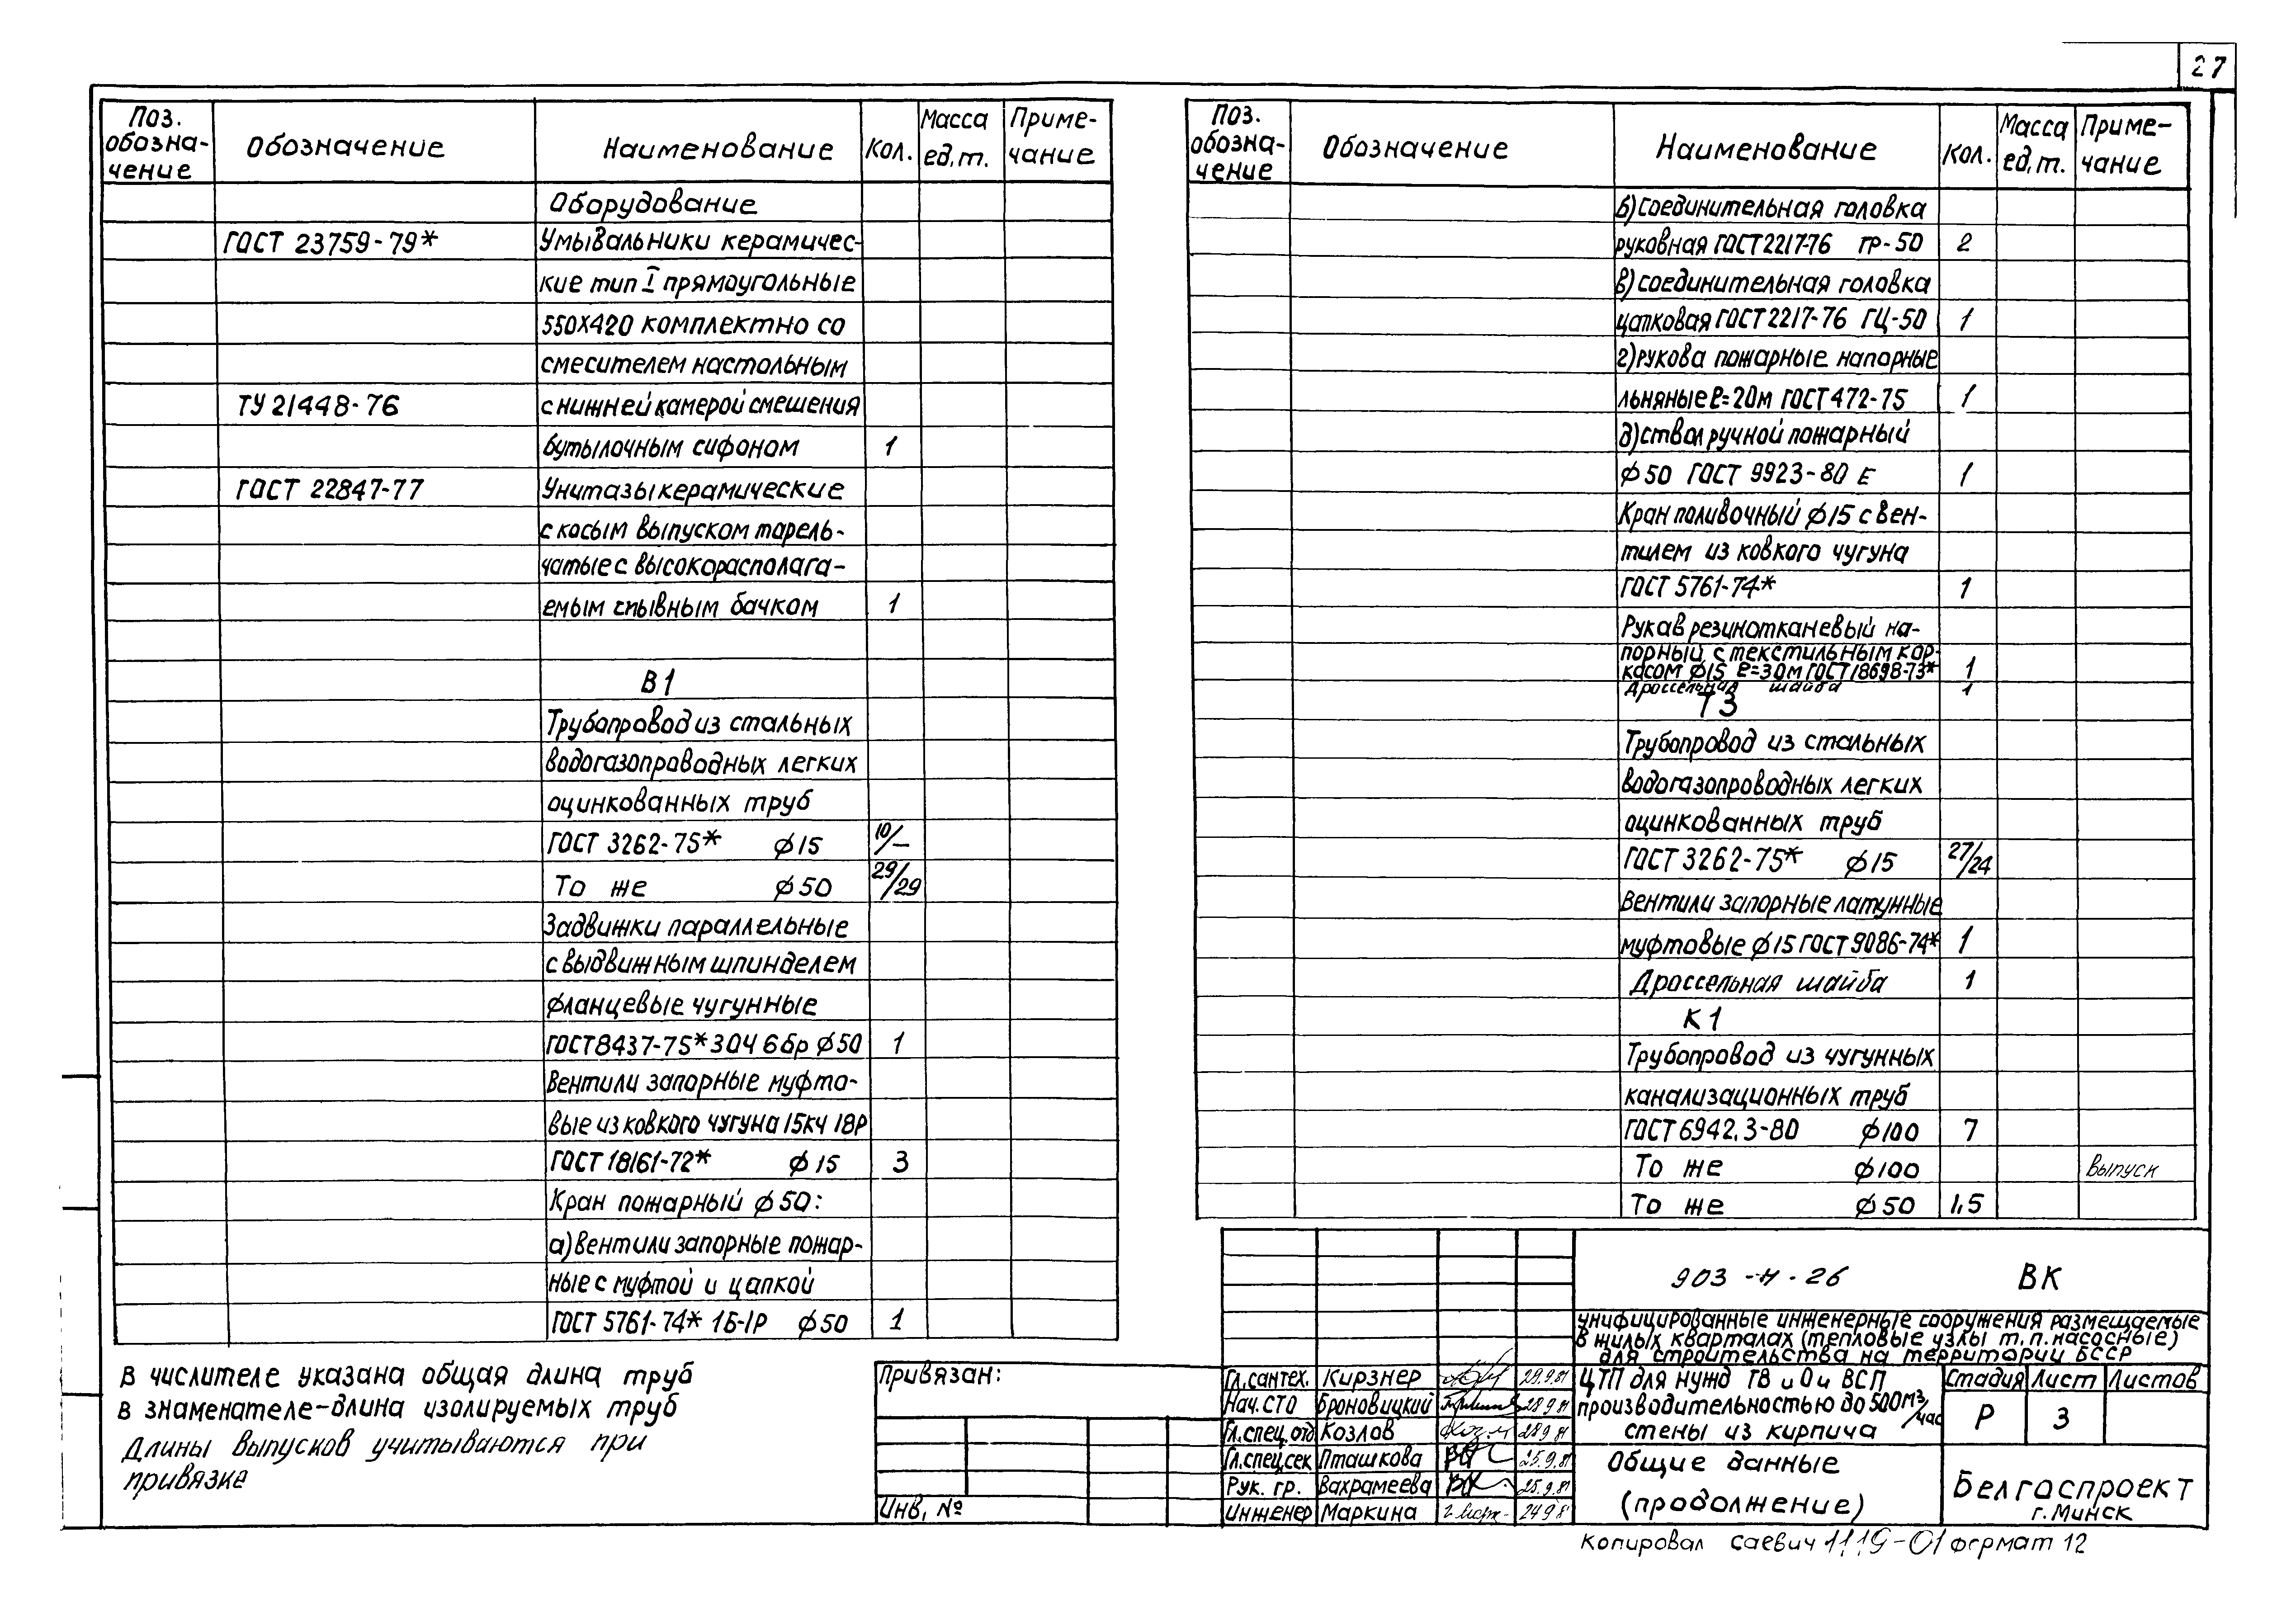 27
Поз. обозна-чение Обозначение Наименование Кол. Масса ед,т. Приме-чание
Оборудование
ГОСТ 23759-79* Умывальники керамичес-
кие тип I прямоугольные
550х420 комплектно со
смесителем настольным
ТУ 21448-76 с нижней камерой смешения
бутылочным сифоном 1
ГОСТ 22847-77 Унитазы керамические
с косым выпуском тарель-
чатые с высокорасполага-
емым смывным бачком 1
В1
Трубопровод из стальных
водогазопроводных легких
оцинкованных труб
ГОСТ 3262-75* ф15 10/—
То же ф50 29/29
Задвижки параллельные
с выдвижным шпинделем
фланцевые чугунные
ГОСТ 8437-75* 30Ч 6бр ф50 1
Вентили запорные муфто-
вые из ковкого чугуна 15кч 18Р
ГОСТ 18161-72* ф15 3
Кран пожарный ф50:
а) вентили запорные пожар-
ные с муфтой и цапкой
ГОСТ 5761-74* 1Б-1Р ф50 1
Поз. обозна-чение Обозначение Наименование Кол. Масса ед,т. Приме-чание
б) соединительная головка
руковная ГОСТ 2217-76 ГР-50 2
в) соединительная головка
цапковая ГОСТ 2217-76 ГЦ-50 1
г) рукова пожарные напорные
льняные ℓ=20м ГОСТ 472-75 1
д) ствол ручной пожарный
ф50 ГОСТ 9923-80 Е 1
Кран поливочный ф15 с вен-
тилем из ковкого чугуна
ГОСТ 5761-74* 1
Рукав резинотканевый на-
порный с текстильным кар-
касом ф15 ℓ=30м ГОСТ 18698-73* 1
Дроссельная шайба 1
Т3
Трубопровод из стальных
водогазопроводных легких
оцинкованных труб
ГОСТ 3262-75* ф15 27/24
Вентили запорные латунные
муфтовые ф15 ГОСТ 9086-74* 1
Дроссельная шайба 1
К1
Трубопровод из чугунных
канализационных труб
ГОСТ 6942.3-80 ф100 7
То же ф100 Выпуск
То же ф50 1,5
В числителе указана общая длина труб
в знаменателе-длина изолируемых труб
Длины выпусков учитываются при
привязке
Привязан:
Инв, №
903-4-26 ВК
унифицированные инженерные сооружения размещаемые
в жилых кварталах (тепловые узлы т.п. насосные)
для строительства на территории БССР
Гл.сантех. Кирзнер 29.9.81
Нач. СТО Броновицкий 28.9.81
Гл.спец.отд Козлов 28.9.81
Гл.спец.сек Пташкова 25.9.81
Рук. гр. Вахрамеева 25.9.81
Инженер Маркина 24.9.8
ЦТП для нужд ГВ и О и ВСП
производительностью до 500м³/час
стены из кирпича
Стадия Лист Листов
Р 3
Общие данные
(продолжение)
Белгоспроект
г. Минск
Копировал Саевич 1119-01 формат 12